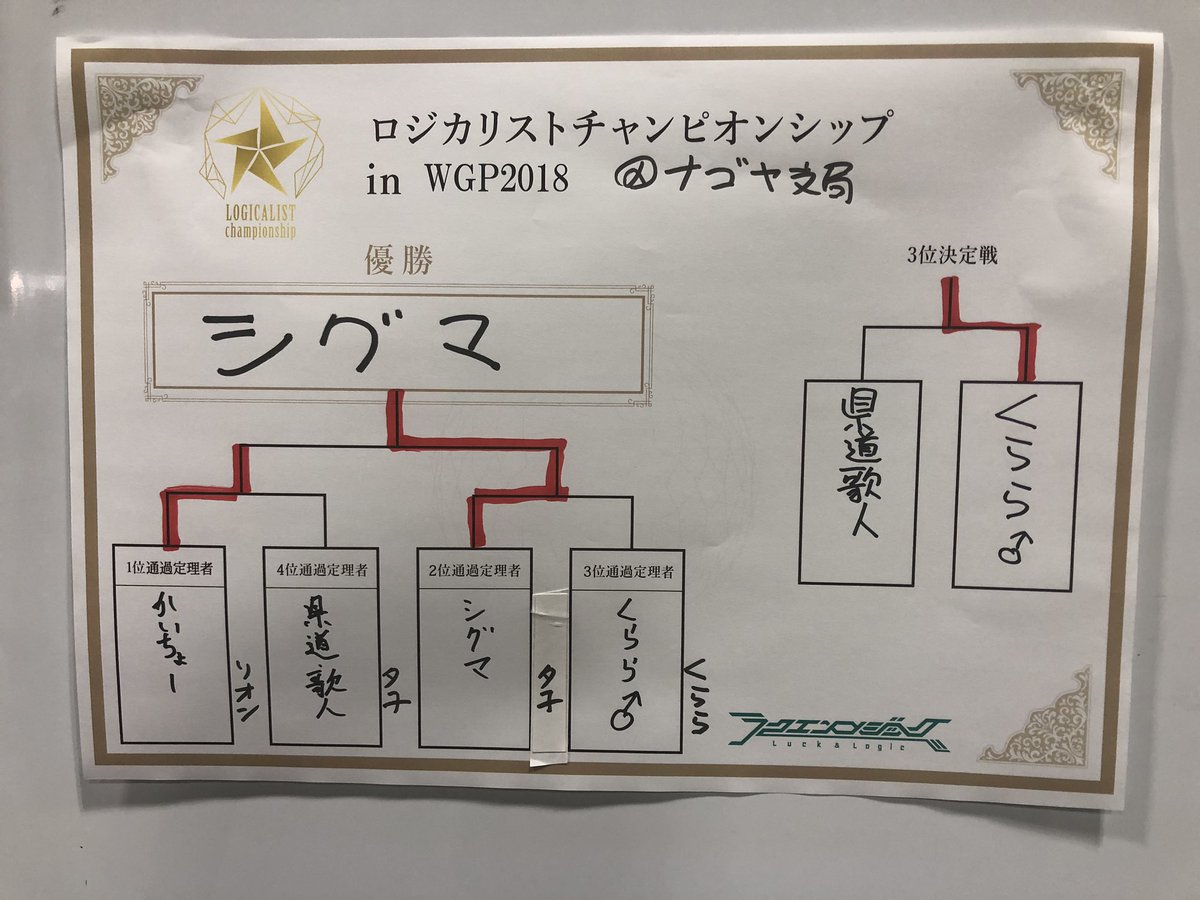 ロジカリストチャンピオンシップ
in WGP2018 @ナゴヤ支局
LOGICALIST
championship
優勝
シグマ
3位決定戦
県道歌人
くらら♂
1位通過定理者
かいちょー
リオン
4位通過定理者
県道歌人
タ子
2位通過定理者
シグマ
タ子
3位通過定理者
くらら♂
くらら
ラクエンロジック
Luck & Logic